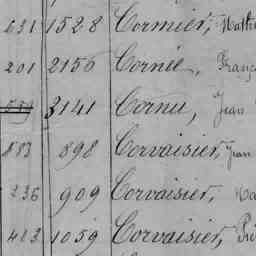 631 1528 Cormier, Math
201 2156 Cornée, Franç
3141 Cornu, Jean
883 898 Corvaisier, Jean
236 909 Corvaisier,
483 1059 Corvaisier,